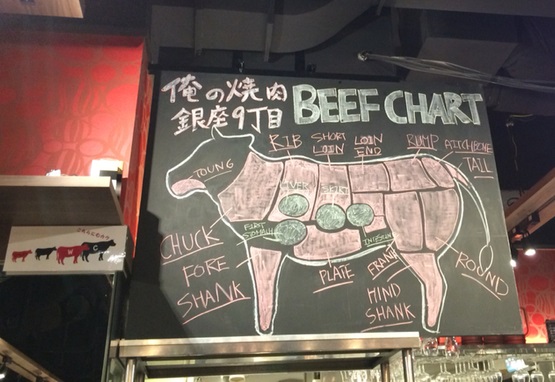 俺の焼肉
銀座9丁目
BEEF CHART
RIB
SHORT
LOIN
LOIN
END
RUMP
AITCHBONE
TAIL
TOUNG
LIVER
HEART
FIRST
STOMACH
CHUCK
FORE
SHANK
PLATE
FRANK
HIND
SHANK
ROUND